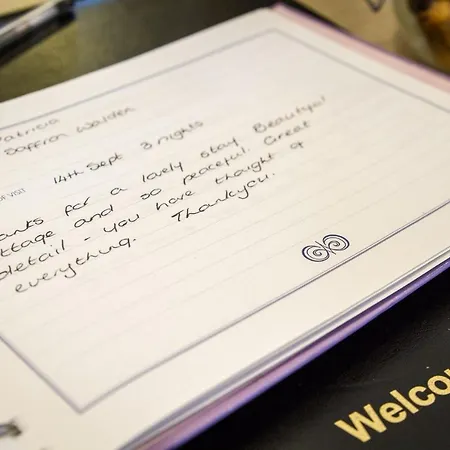 Patricia
Saffron Walden
OF VISIT 14th Sept 3 nights
anks for a lovely stay. Beautiful
ttage and so peaceful. Great
detail - you have thought of
everything. Thankyou.
Welco